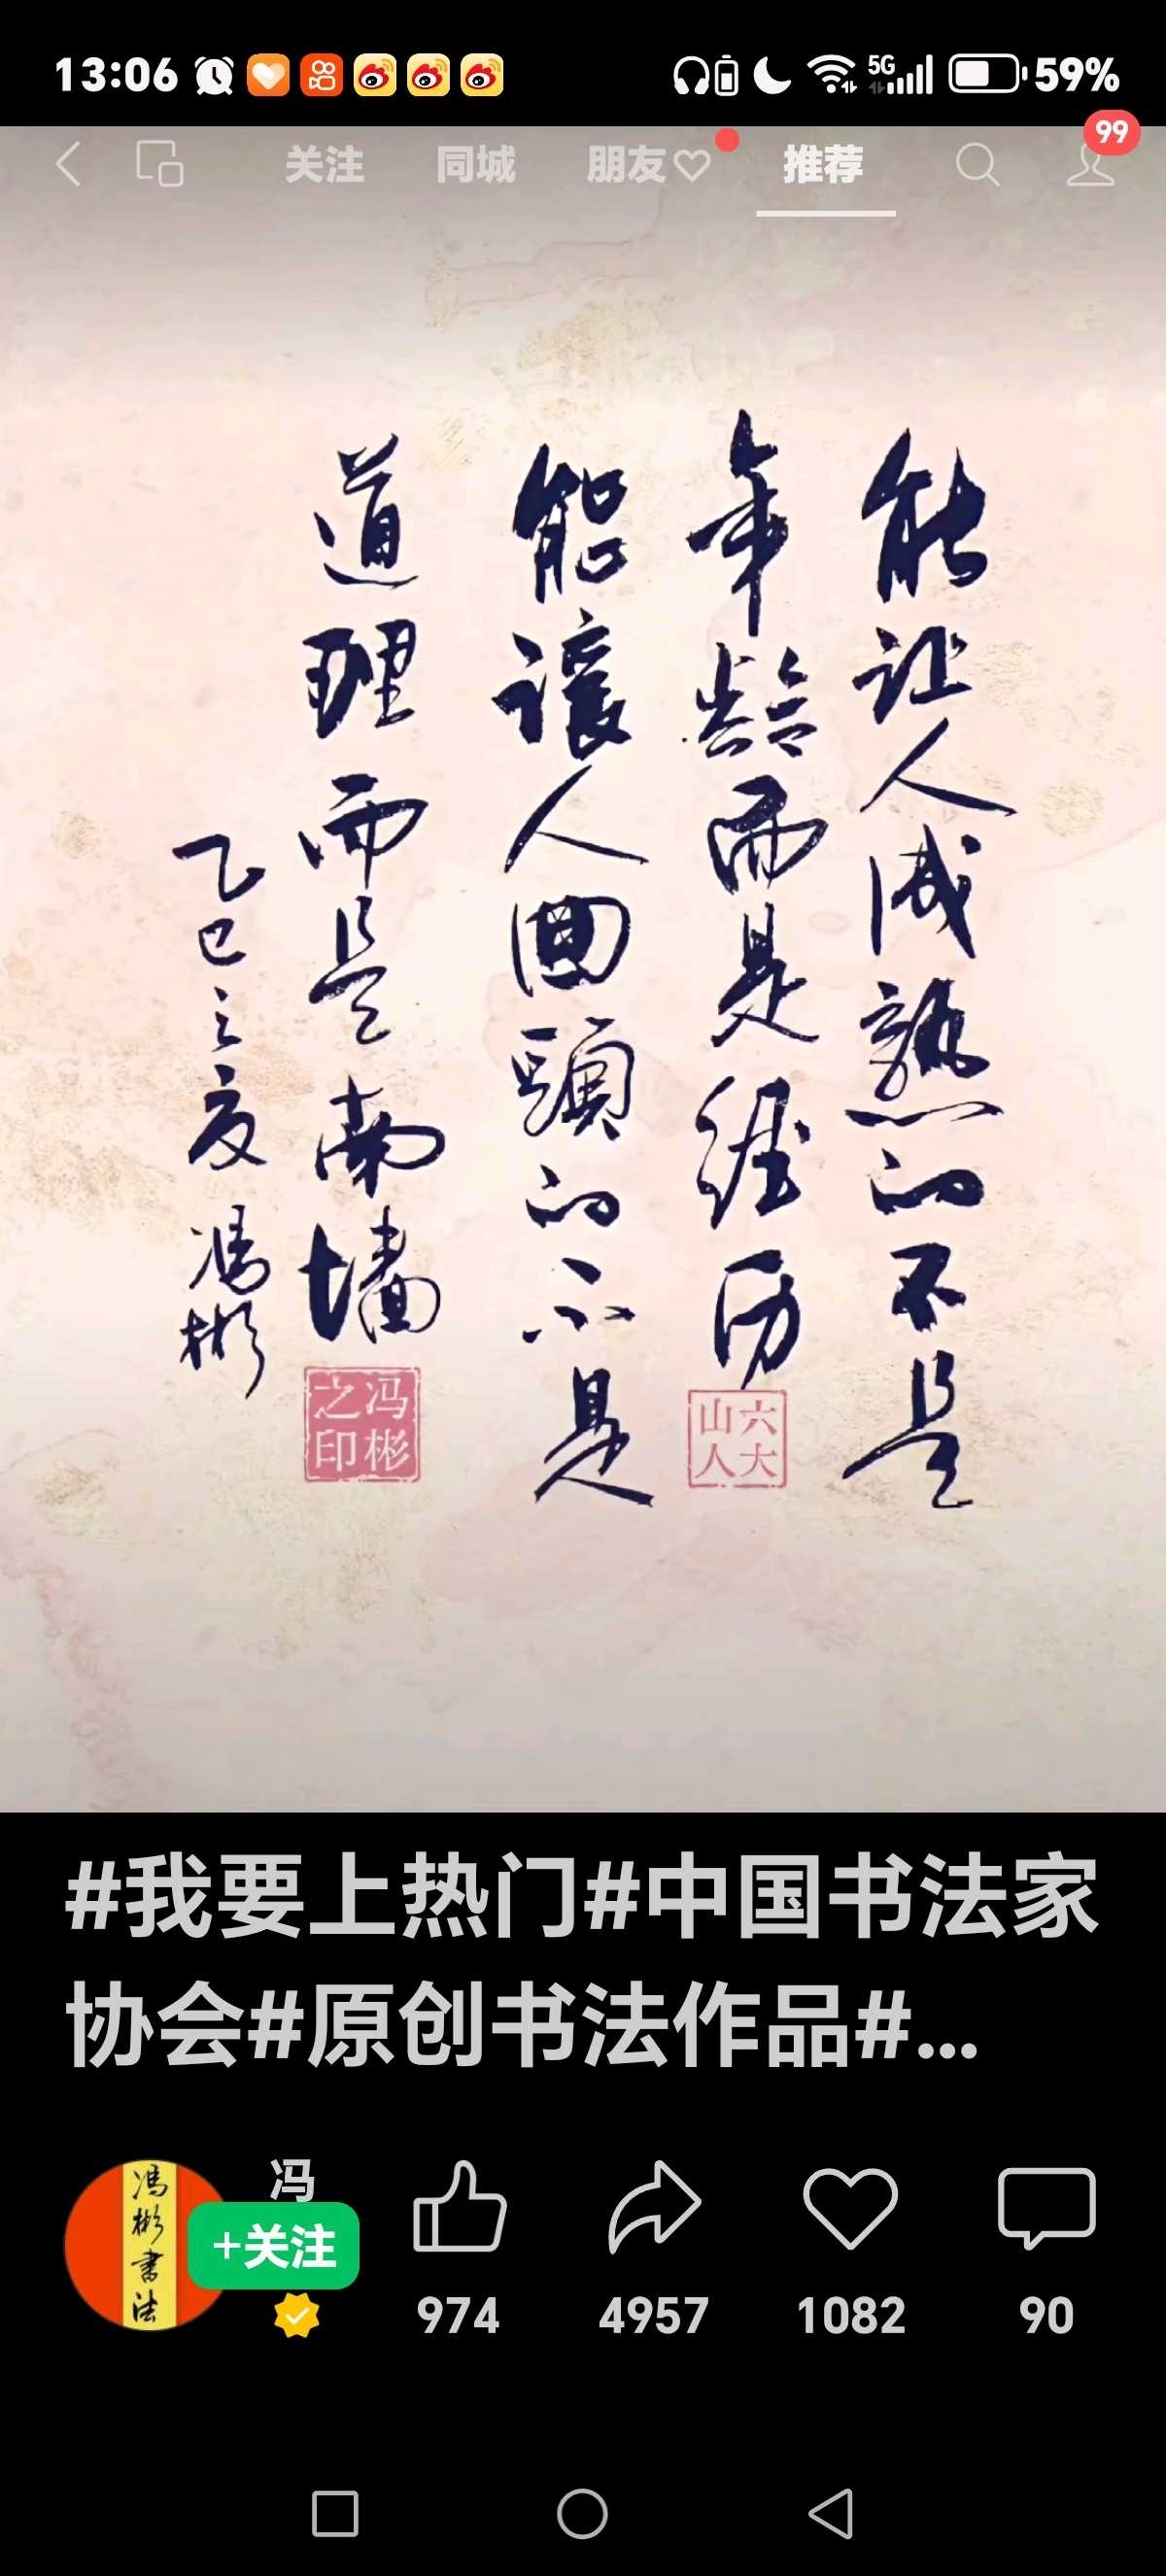 13:06
5G
59%
关注 同城 朋友 推荐
99
能让人成熟的不是
年龄而是经历
能讓人回頭的不是
道理而是南墙
乙巳之夏 馮彬
六大山人
冯彬之印
#我要上热门#中国书法家
协会#原创书法作品#...
馮彬書法
冯
+关注
974 4957 1082 90